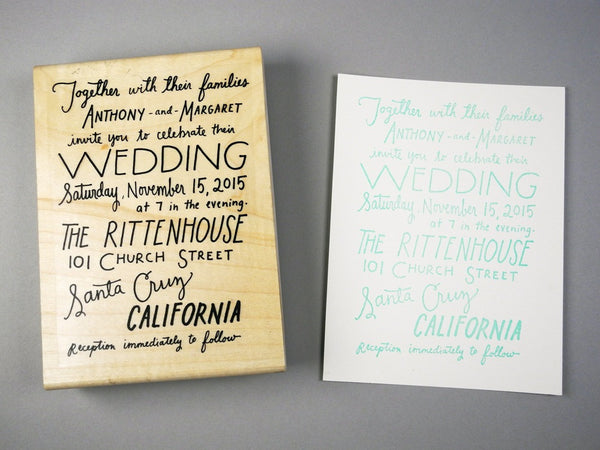 Together with their families
ANTHONY -and- MARGARET
invite you to celebrate their
WEDDING
Saturday, November 15, 2015
at 7 in the evening.
THE RITTENHOUSE
101 CHURCH STREET
Santa Cruz
CALIFORNIA
Reception immediately to follow
Together with their families
ANTHONY -and- MARGARET
invite you to celebrate their
WEDDING
Saturday, November 15, 2015
at 7 in the evening.
THE RITTENHOUSE
101 CHURCH STREET
Santa Cruz
CALIFORNIA
Reception immediately to follow